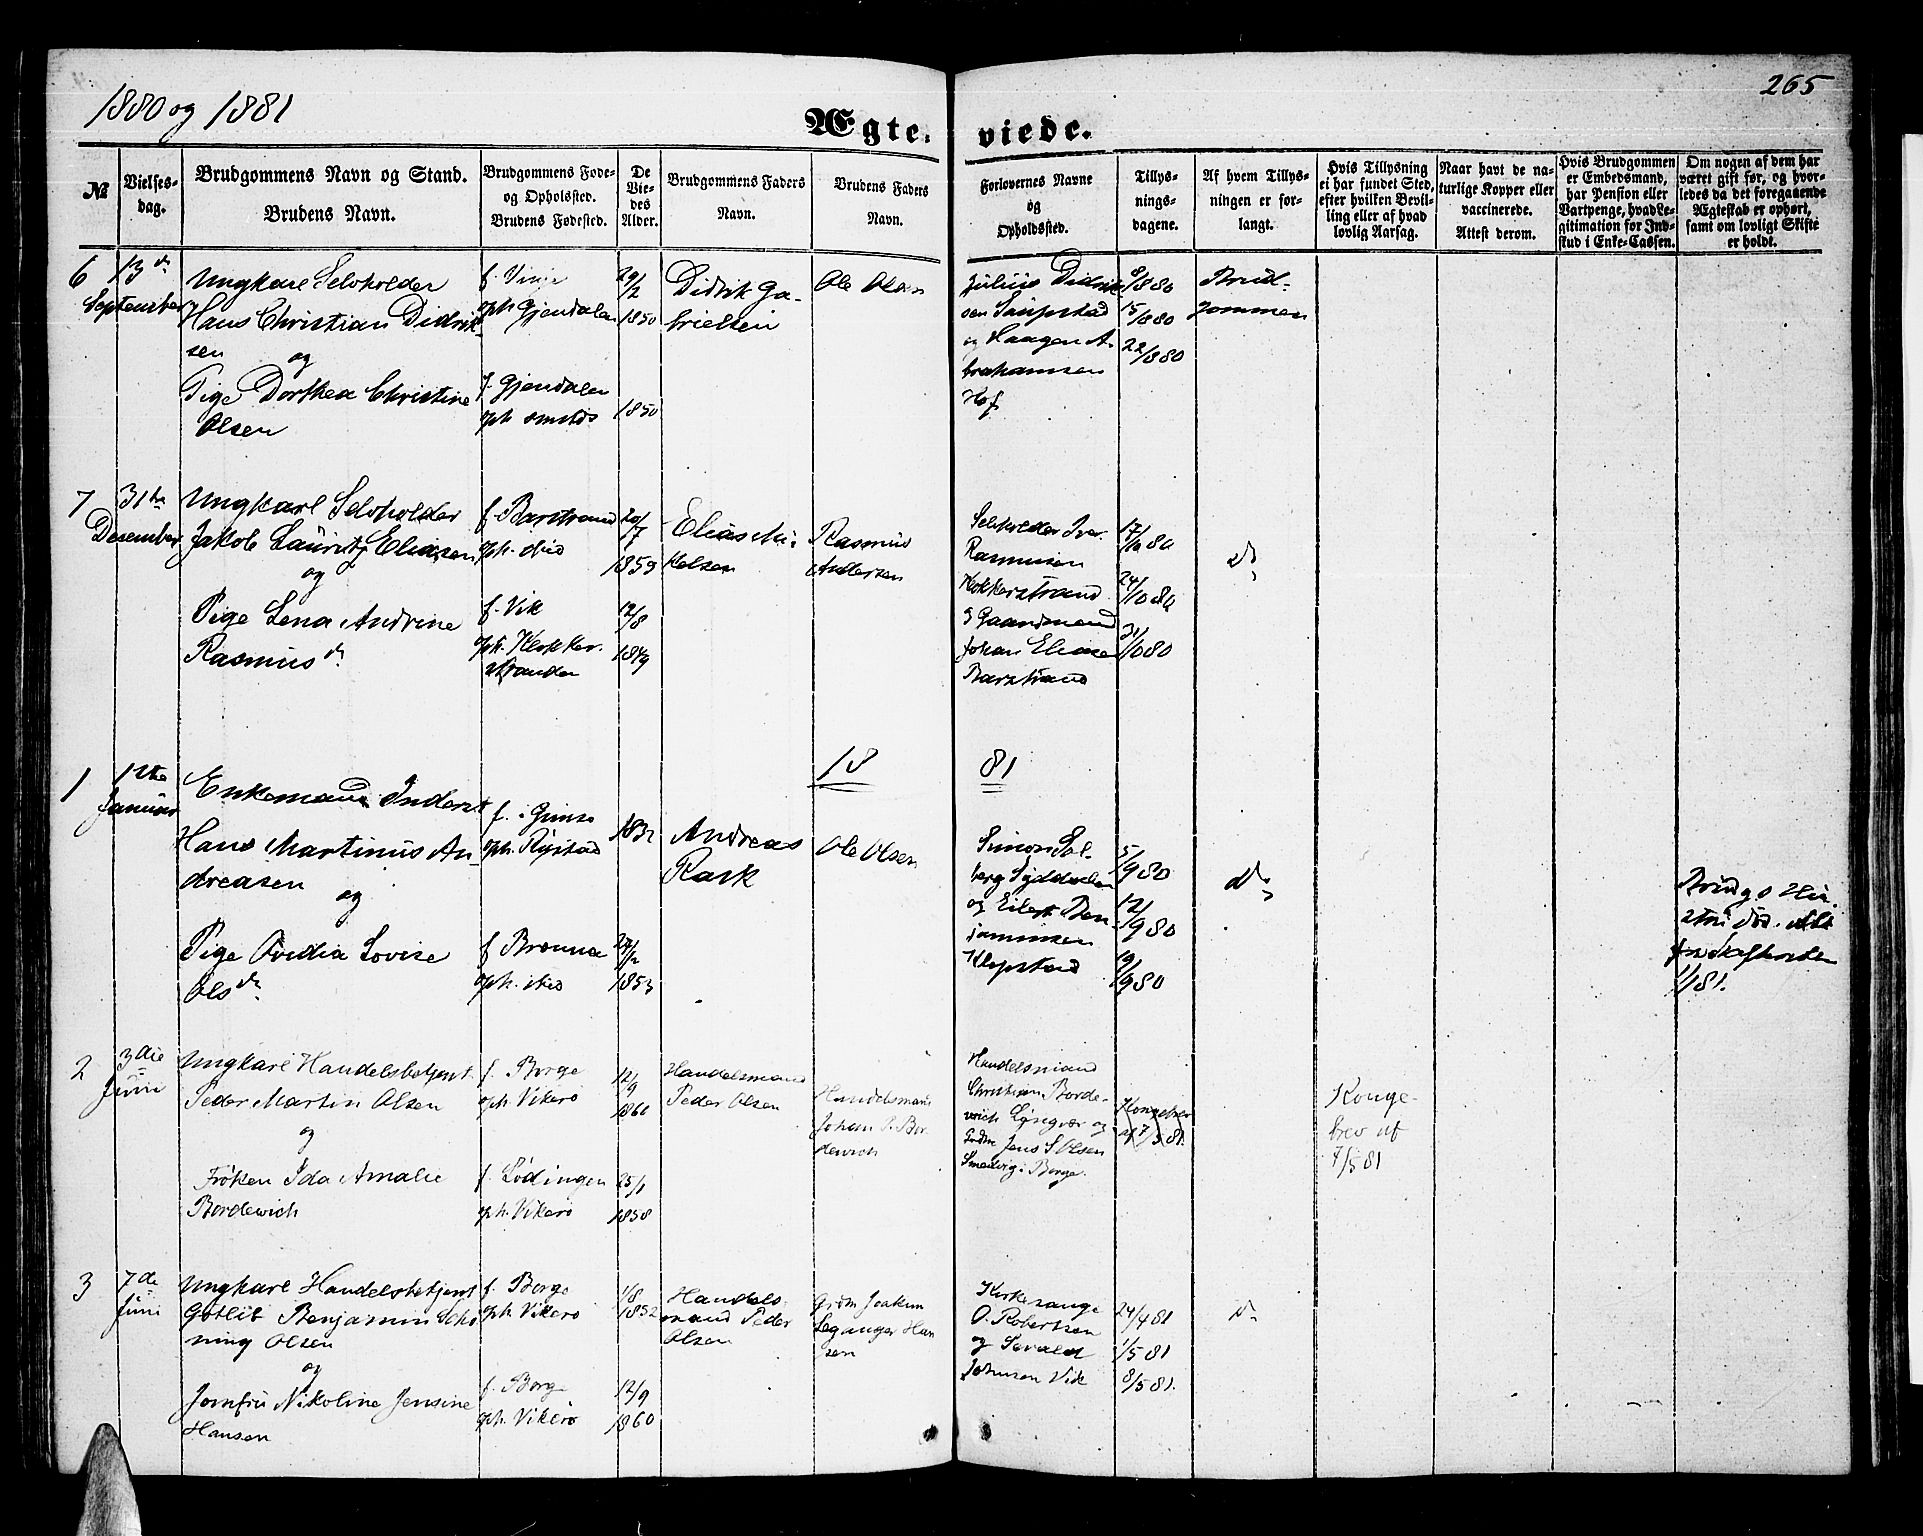 1880 og 1881
265
Ægte-
viede.
№
Vielses-
dag.
Brudgommens Navn og Stand.
Brudens Navn.
Brudgommens Føde-
og Opholsted.
Brudens Fødested.
De
Vie-
des
Alder.
Brudgommens Faders
Navn.
Brudens Faders
Navn.
Forlovernes Navne
og
Opholdssted.
Tillys-
nings-
dagene.
Af hvem Tillys-
ningen er for-
langt.
Hvis Tillysning
ei har fundet Sted,
efter hvilken Bevil-
ling eller af hvad
lovlig Aarsag.
Naar havt de na-
turlige Kopper eller
vaccinerede.
Attest derom.
Hvis Brudgommen
er Embedsmand,
har Pension eller
Vartpenge, hvad Le-
gitimation for Ind-
skud i Enke-Cassen.
Om nogen af dem har
været gift før, og hvor-
ledes da det foregaaende
Ægteskab er ophørt,
samt om lovligt Skifte
er holdt.
6
13de
September
Ungkarl Selvholder
Hans Christian Didrik-
sen
og
Pige Dorthea Christine
Olsen
f. Vinje
oph Gjendalen
f. Gjendalen
oph smsteds
29/2
1850
1850
Didrik Ga-
brielsen
Ole Olsen
Julius Didrik-
sen Saupstad
og Haagen A-
brahamsen
Hof
8/8 80
15/8 80
22/8 80
Brud-
gommen
7
31te
Desember
Ungkarl Selvholder
Jakob Lauritz Eliasen
og
Pige Lena Andrine
Rasmusdr
f. Barstrand
oph. dito
f. Vik
oph. Klokker-
stranden
20/7
1859
12/8
1849
Elias Mi-
kelsen
Rasmus
Andersen
Selvholder Iver
Rasmusen
Klokkerstrand
og Gaardmand
Johan Eliasen
Barstrand
17/10 80
24/10 80
31/10 80
do
18 81
1
12te
Januar
Enkemand Inderst
Hans Martinus An-
dreasen
og
Pige Ovedia Lovise
Olsdr
f. i Gimsø
oph. Rystad
f Brenna
oph. sted
1832
1853
Andreas
Rask
Ole Olsen
Simon Sol-
berg Syddalen
og Eilert Ben-
jaminsen
Klepstad
5/9 80
12/9 80
19/9 80
do
1/1 81.
2
3die
Juni
Ungkarl Handelsbetjent
Peder Martin Olsen
og
Frøken Ida Amalie
Bordewich
f. Borge
oph. Vikerø
f. Lødingen
oph. Vikerø
12/9
1860
25/1
1858
Handelsmand
Peder Olsen
Handelsmand
Johan P. Bor-
dewich
Handelsmand
Christian Borde-
wich Lyngvær og
Jens S Olsen
Smedvig i Borge.
Kongebrev
af 7/5 81.
Konge-
brev af
7/5 81
3
7de
Juni
Ungkarl Handelsbetjent
Gotlib Benjamin Schø
ning Olsen
og
Jomfru Nikoline Jensine
Hansen
f. Borge
oph. Vikerø
f. Borg
oph. Vikerø
1/8
1852
12/9
1860
Handels-
mand Peder
Olsen
Grdm Joakim
Leganger Han
sen
Kirkesange
O. Robertsen
og Sevald
Johnsen Vik
24/4 81
1/5 81
8/5 81.
do